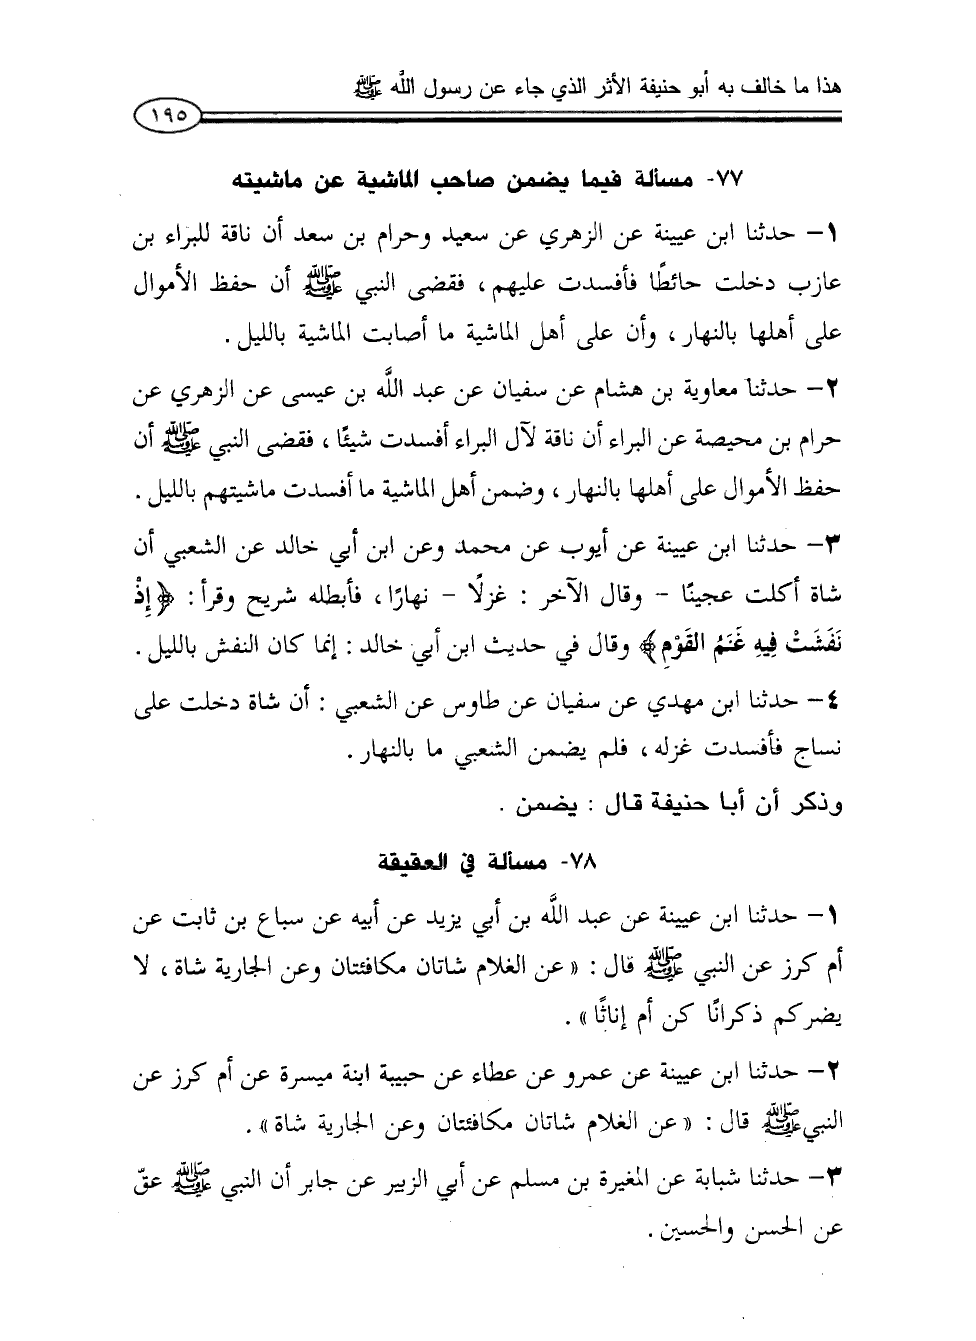 هذا ما خالف به أبو حنيفة الأثر الذي جاء عن رسول الله ﷺ
١٩٥
٧٧- مسألة فيما يضمن صاحب الماشية عن ماشيته
١- حدثنا ابن عيينة عن الزهري عن سعيد وحرام بن سعد أن ناقة للبراء بن
عازب دخلت حائطًا فأفسدت عليهم ، فقضى النبي ﷺ أن حفظ الأموال
على أهلها بالنهار ، وأن على أهل الماشية ما أصابت الماشية بالليل .
٢- حدثنا معاوية بن هشام عن سفيان عن عبد الله بن عيسى عن الزهري عن
حرام بن محيصة عن البراء أن ناقة لآل البراء أفسدت شيئًا ، فقضى النبي ﷺ أن
حفظ الأموال على أهلها بالنهار ، وضمن أهل الماشية ما أفسدت ماشيتهم بالليل .
٣- حدثنا ابن عيينة عن أيوب عن محمد وعن ابن أبي خالد عن الشعبي أن
شاة أكلت عجينًا - وقال الآخر : غزلًا - نهارًا ، فأبطله شريح وقرأ : ﴿إِذْ
نَفَشَتْ فِيهِ غَنَمُ القَوْمِ﴾ وقال في حديث ابن أبي خالد : إنما كان النفش بالليل .
٤- حدثنا ابن مهدي عن سفيان عن طاوس عن الشعبي : أن شاة دخلت على
نساج فأفسدت غزله ، فلم يضمن الشعبي ما بالنهار .
وذكر أن أبا حنيفة قال : يضمن .
٧٨- مسألة في العقيقة
١- حدثنا ابن عيينة عن عبد الله بن أبي يزيد عن أبيه عن سباع بن ثابت عن
أم كرز عن النبي ﷺ قال : « عن الغلام شاتان مكافئتان وعن الجارية شاة ، لا
يضركم ذكرانًا كن أم إناثًا » .
٢- حدثنا ابن عيينة عن عمرو عن عطاء عن حبيبة ابنة ميسرة عن أم كرز عن
النبي ﷺ قال : « عن الغلام شاتان مكافئتان وعن الجارية شاة » .
٣- حدثنا شبابة عن المغيرة بن مسلم عن أبي الزبير عن جابر أن النبي ﷺ عقّ
عن الحسن والحسين .